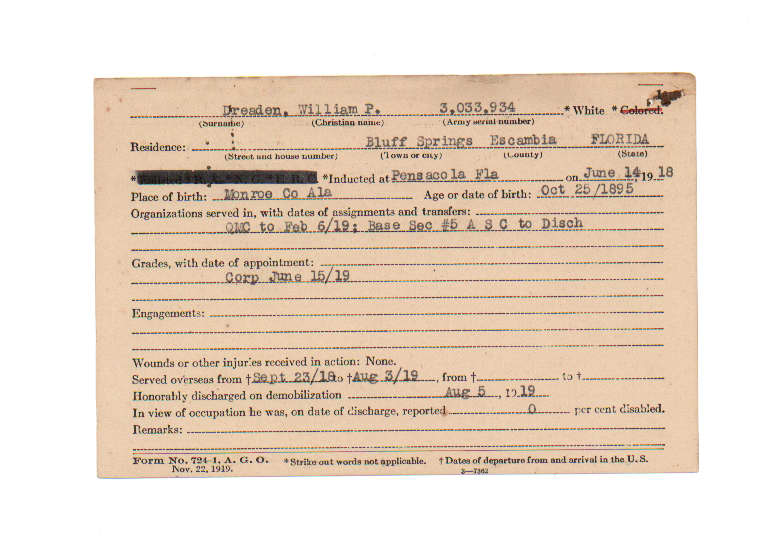 Dreaden, William P. 3,033,934 * White * Colored.
(Surname) (Christian name) (Army serial number)
Residence: Bluff Springs Escambia FLORIDA
(Street and house number) (Town or city) (County) (State)
* *Inducted at Pensacola Fla on June 14, 1918
Place of birth: Monroe Co Ala Age or date of birth: Oct 25/1895
Organizations served in, with dates of assignments and transfers:
QMC to Feb 6/19; Base Sec #5 A S C to Disch
Grades, with date of appointment:
Corp June 15/19
Engagements:
Wounds or other injuries received in action: None.
Served overseas from † Sept 23/18 to † Aug 3/19, from † to †
Honorably discharged on demobilization Aug 5, 1919
In view of occupation he was, on date of discharge, reported 0 per cent disabled.
Remarks:
Form No. 724-1, A. G. O. *Strike out words not applicable. † Dates of departure from and arrival in the U. S.
Nov. 22, 1919. 3—7362